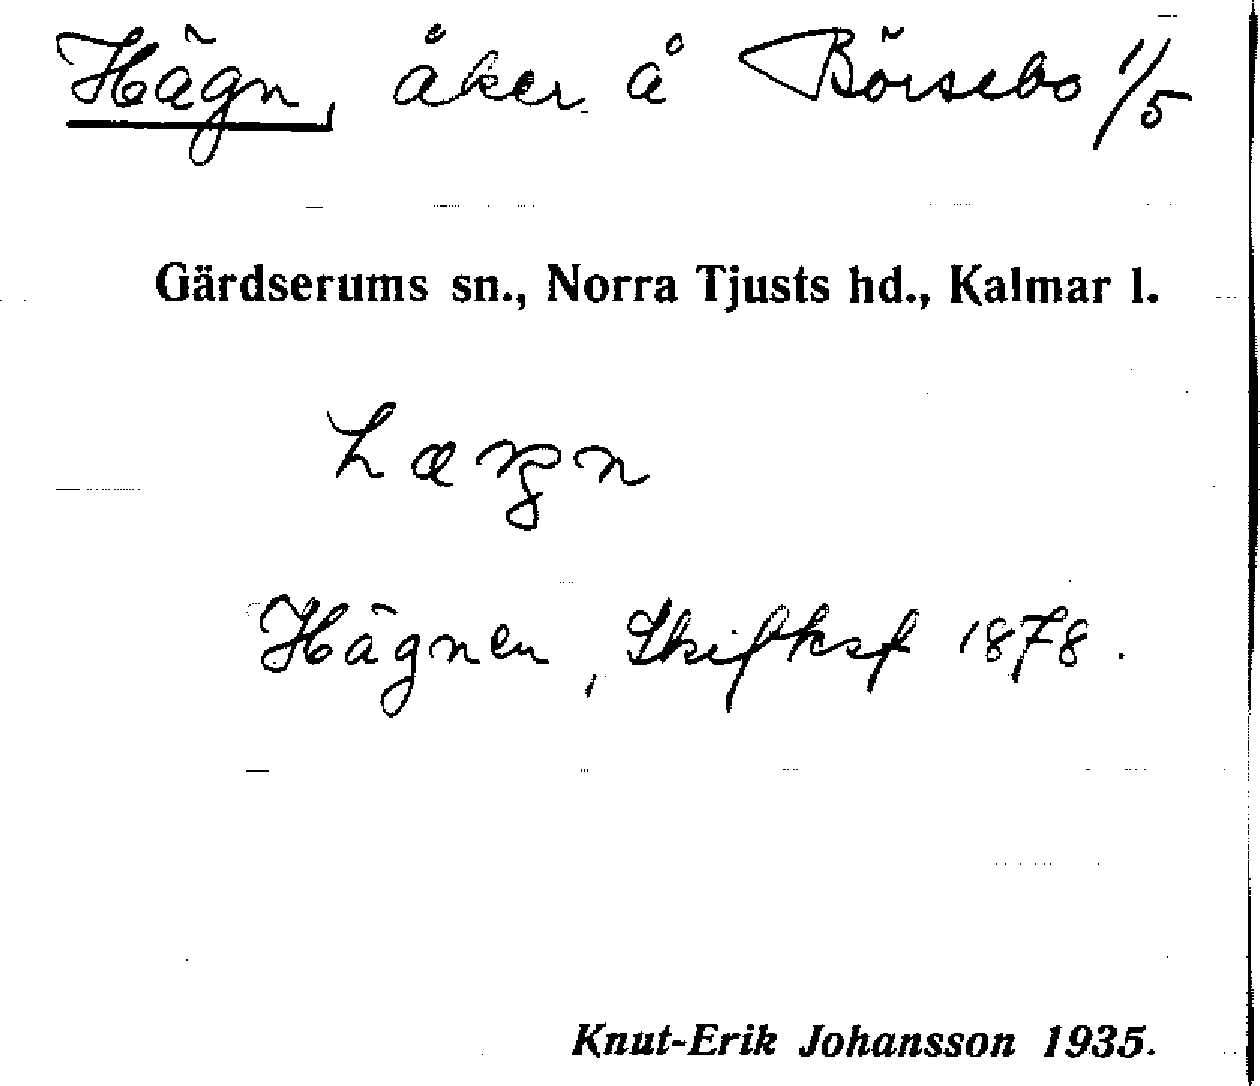 Hägn, åker å Börsebo 1/5
Gärdserums sn., Norra Tjusts hd., Kalmar l.
Hägnen, Skifteskf 1878.
Knut-Erik Johansson 1935.